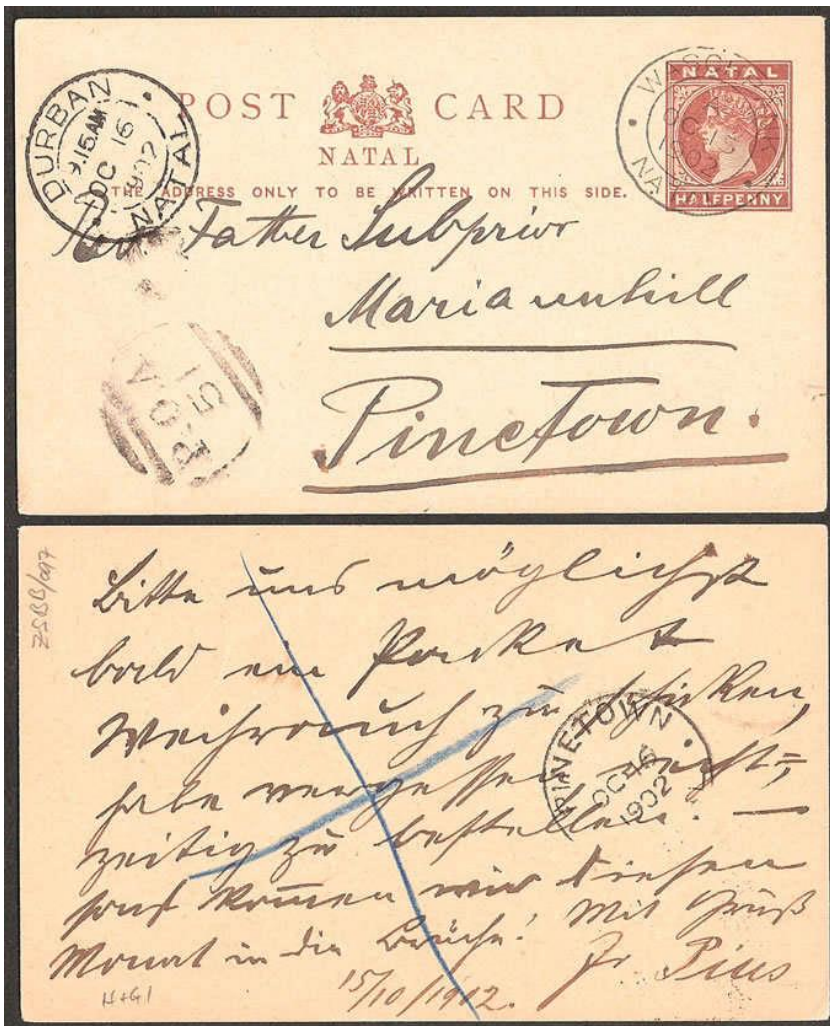 POST CARD
NATAL
THE ADDRESS ONLY TO BE WRITTEN ON THIS SIDE.
DURBAN
9.15 AM
OC 16
1902
NATAL
NATAL
HALFPENNY
A
OC 15
1902
Rev. Father Subprior
Mariannhill
Pinetown.
P.O.A
51
ZSBB/097
Bitte uns möglichst
bald ein Packet
Weihrauch zu schicken,
habe vergessen recht=
zeitig zu bestellen. —
sonst kommen wir diesen
Monat in die Brüche! Mit Gruß
Fr. Pius
15/10/1902.
PINETOWN
OC 16
1902